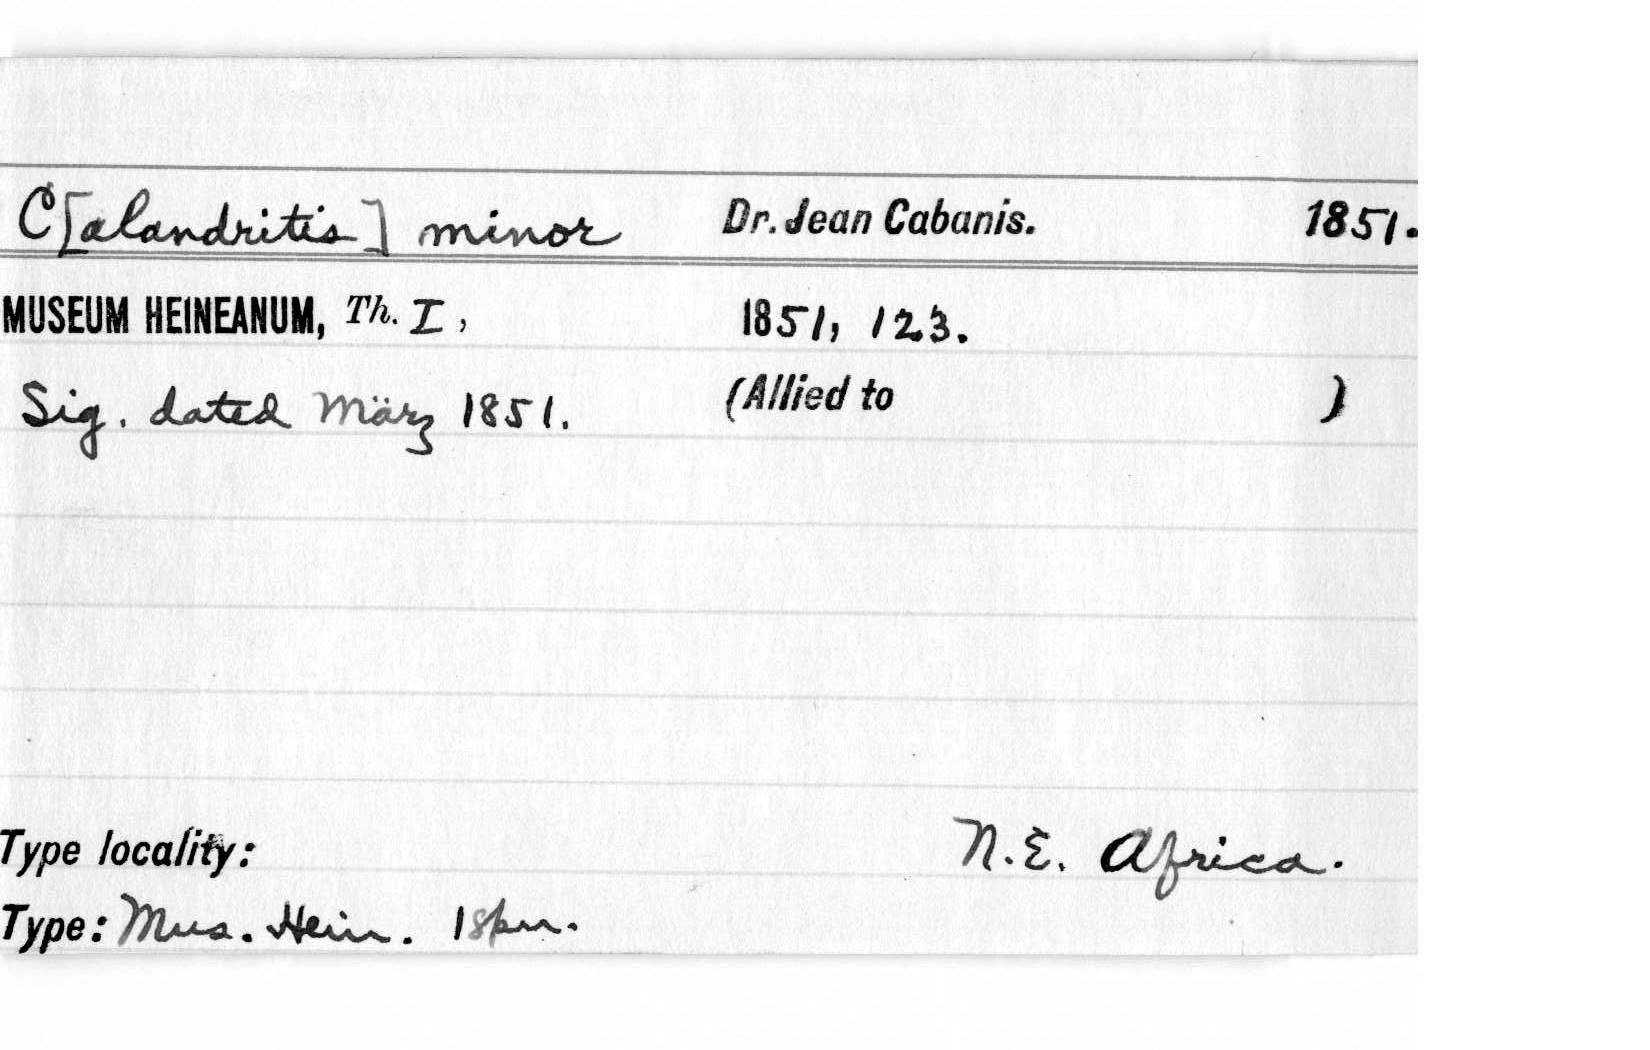 C[alandritis] minor Dr. Jean Cabanis. 1851.
MUSEUM HEINEANUM, Th. I, 1851, 123.
Sig. dated März 1851. (Allied to )
Type locality: N.E. Africa.
Type: Mus. Hein. 1 spm.